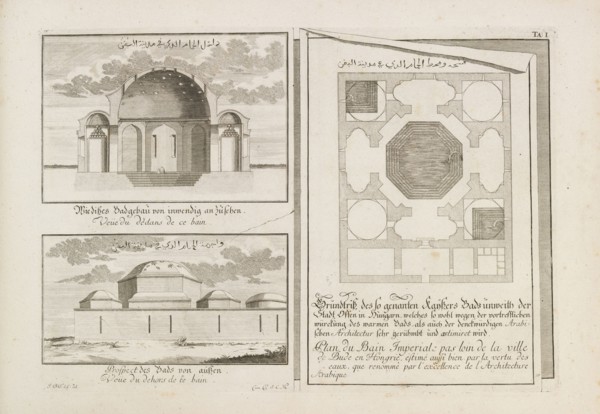 داخل الحمام الذي في مدينة
Wie dißes Badgebäu von inwendig an Zusehen.
Veüe du dédans de ce bain.
الحمام الذي في مدينة
Prospect des Bads von außen.
Veüe du dehors de le bain.
TA. I.
الحمام الذي في مدينة
Grundriß des so genanten Kaÿsers Bad unweith der
Stadt Offen in Hungarn. welches so wohl wegen der vortrefflichen
würckung des warmen Bads, als auch der denckwürdigen Arabi-
schen Architectur sehr gerühmbt und æstimiret wird.
Plan du Bain Imperial: pas loin de la ville
de Bude en Hongrie, estimé aussi bien par la vertu des
eaux, que renommé par l'excellence de l'Architecture
Arabique.